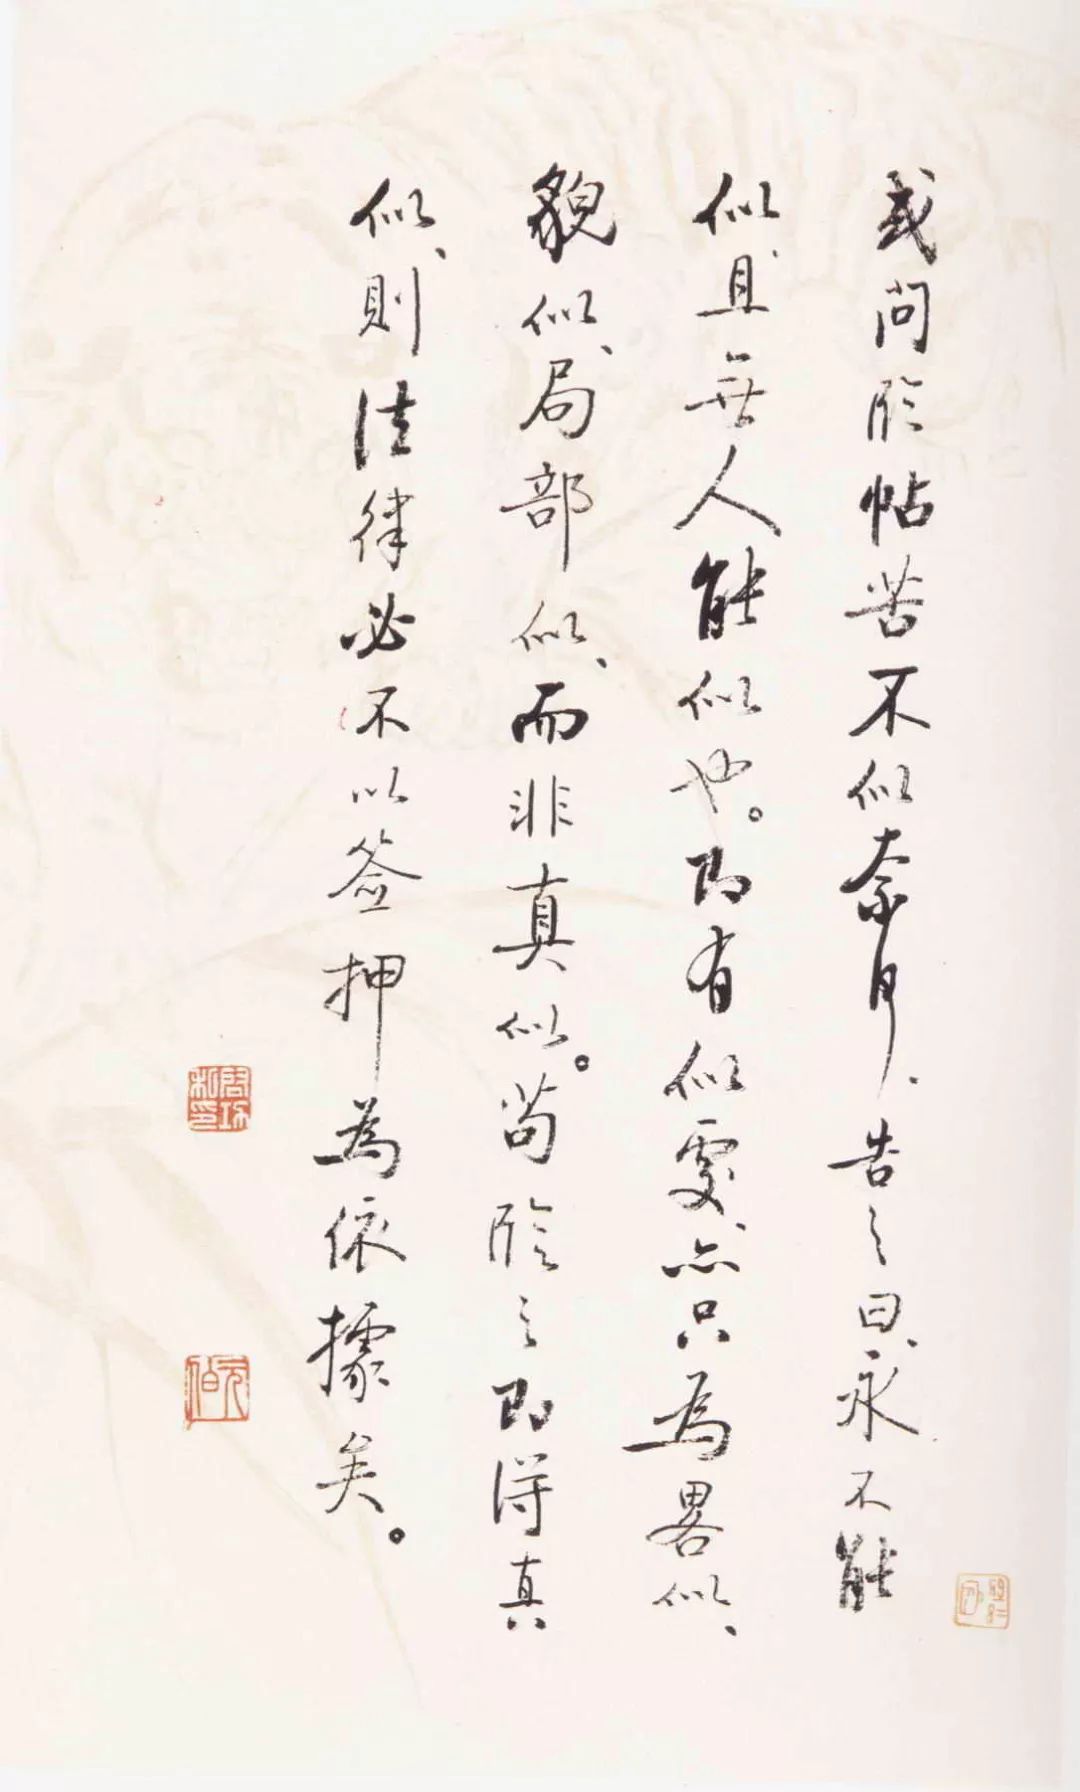 或问临帖苦不似奈何、告之曰、永不能
似、且无人能似也。即有似处、亦只为畧似、
貌似、局部似、而非真似。苟临之即得真
似、则法律必不以签押为依據矣。
启功
私印
元伯